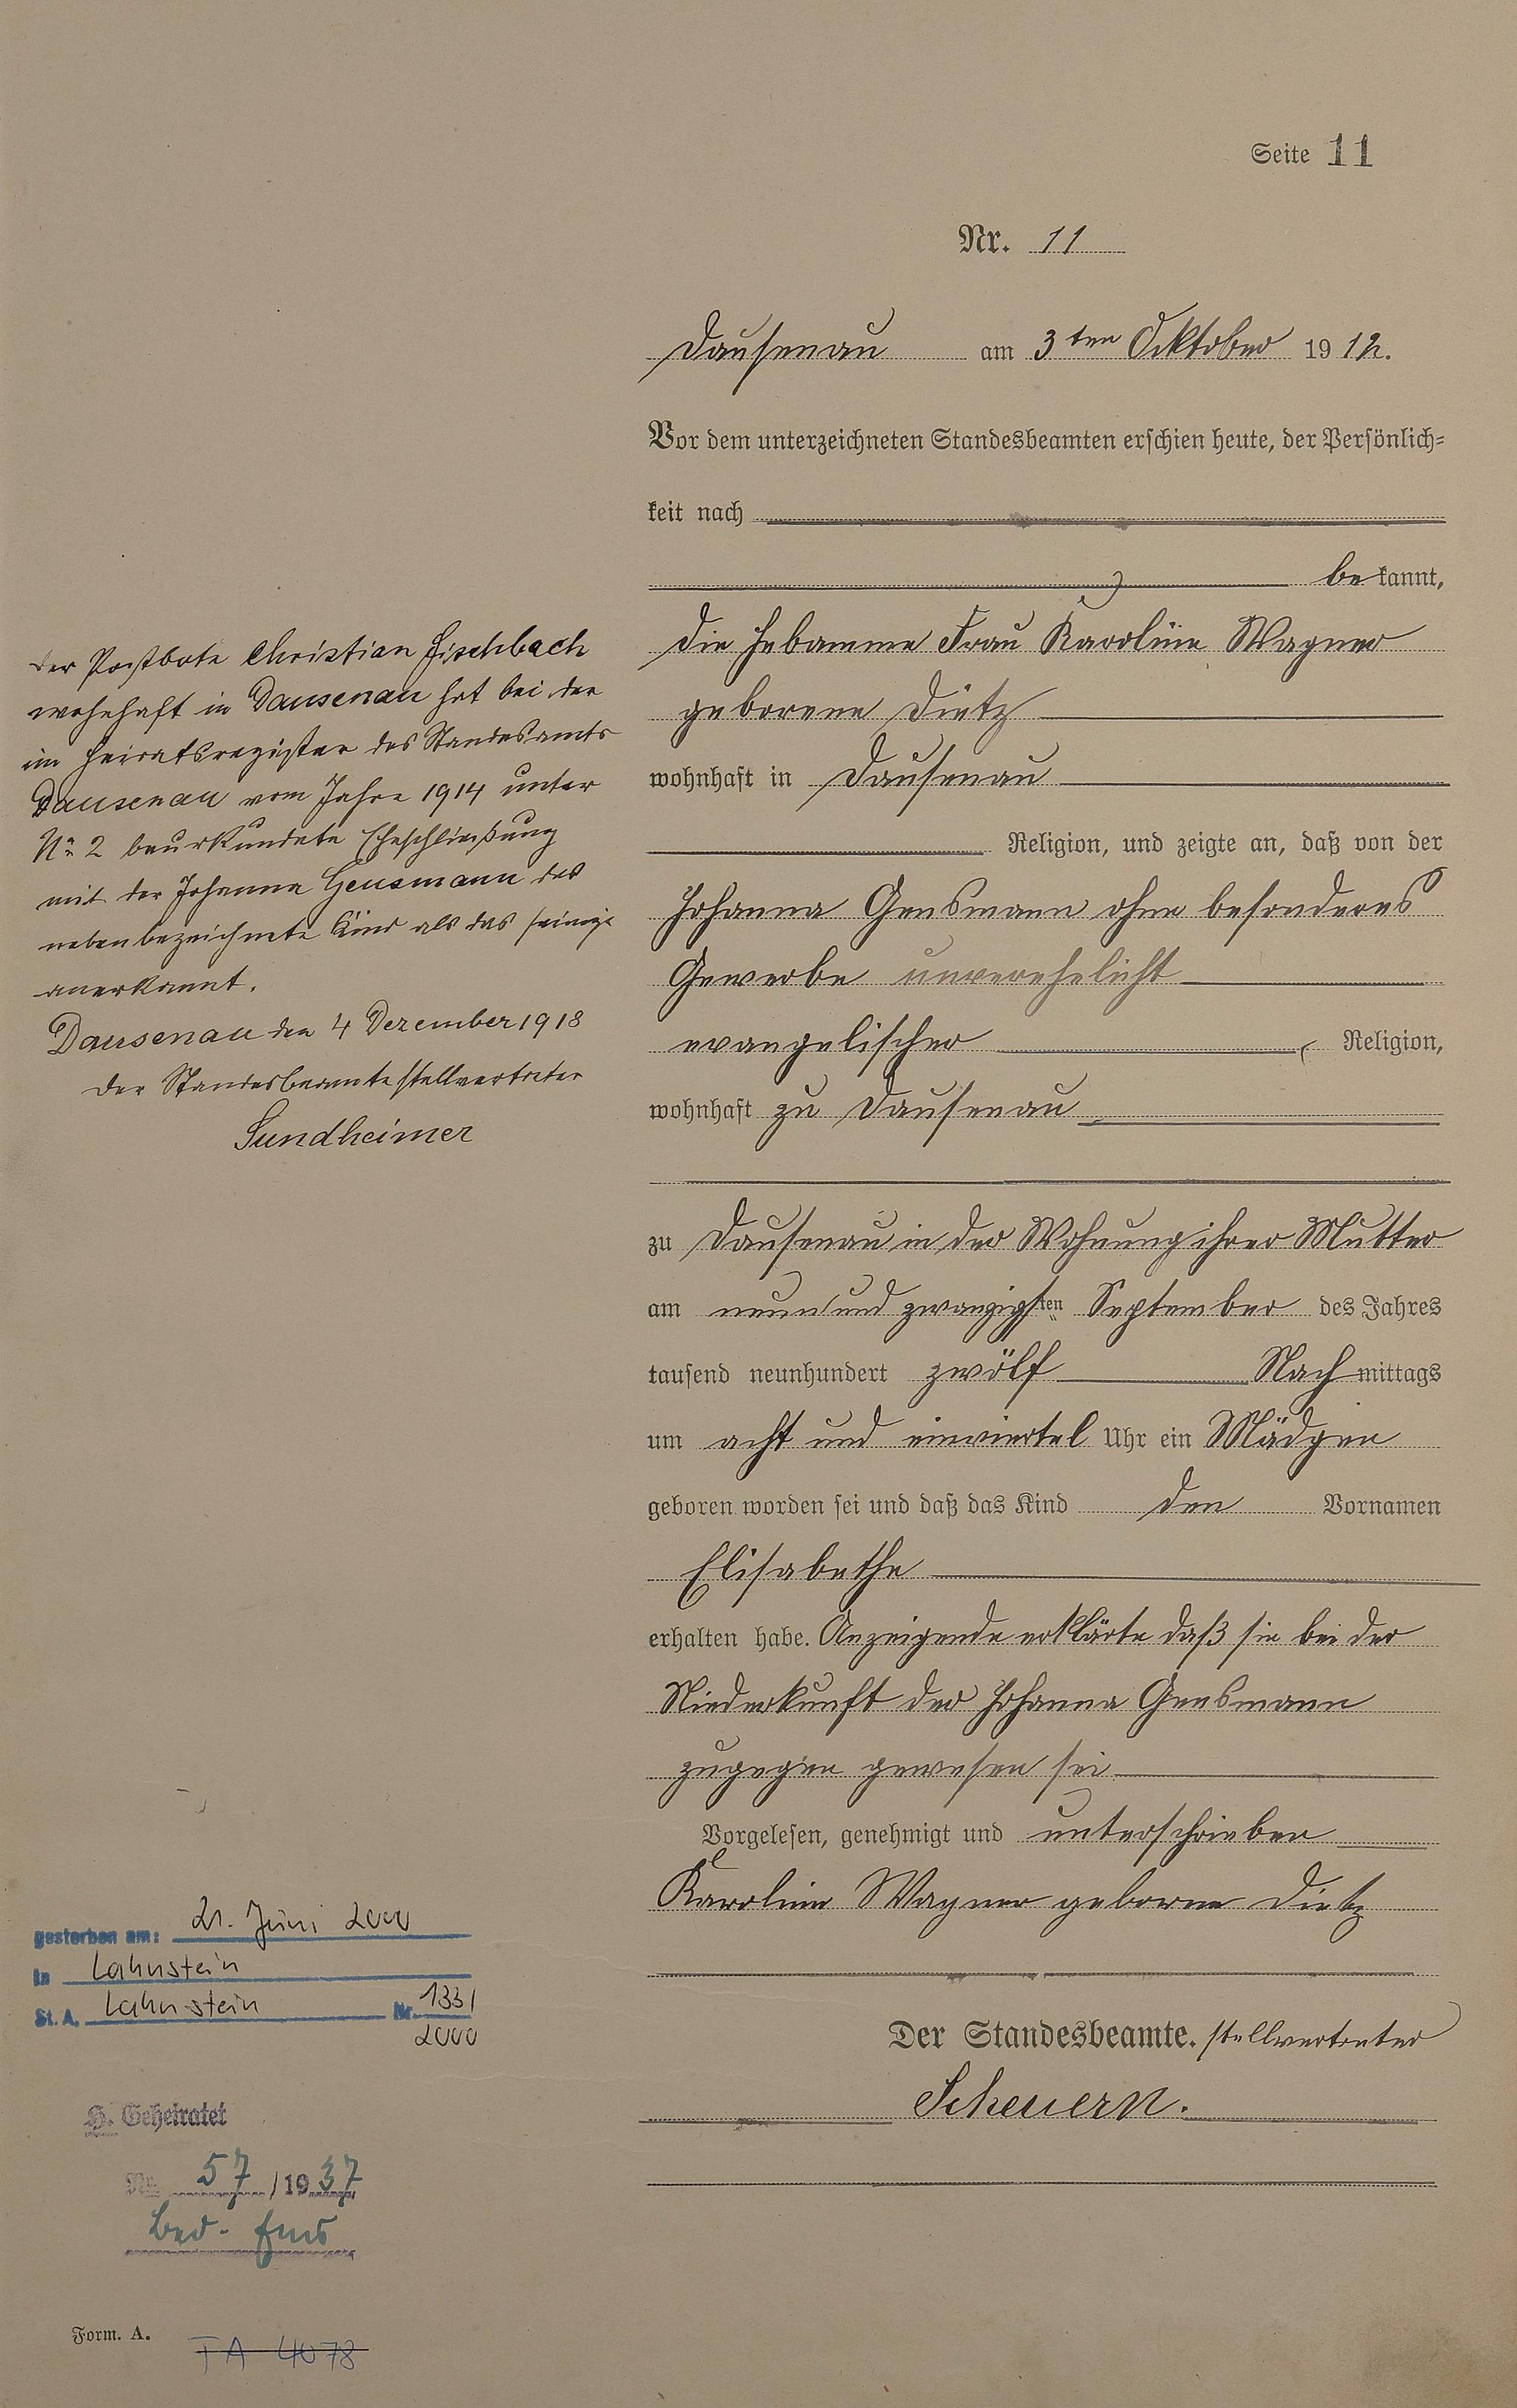 Seite 11
Nr. 11
Dausenau am 3ten Oktober 1912.
Vor dem unterzeichneten Standesbeamten erschien heute, der Persönlich-
keit nach
bekannt,
die Hebamme Frau Karoline Wagner
geborene Dietz
wohnhaft in Dausenau
Religion, und zeigte an, daß von der
Johanna Gensmann ohne besonderes
Gewerbe unverehelicht
evangelischer Religion,
wohnhaft zu Dausenau
zu Dausenau in der Wohnung ihrer Mutter
am neun und zwanzigsten September des Jahres
tausend neunhundert zwölf Nachmittags
um acht und einviertel Uhr ein Mädgen
geboren worden sei und daß das Kind den Vornamen
Elisabethe
erhalten habe. Anzeigende erklärte daß sie bei der
Niederkunft der Johanna Gensmann
zugegen gewesen sei
Vorgelesen, genehmigt und unterschrieben
Karoline Wagner geborene Dietz
Der Standesbeamte. stellvertreter
Scheuern.
Der Postbote Christian Fischbach
wohnhaft in Dausenau hat bei der
im Heiratsregister des Standesamts
Dausenau vom Jahre 1914 unter
No 2 beurkundete Eheschließung
mit der Johanna Gensmann das
nebenbezeichnete Kind als das seinige
anerkannt.
Dausenau den 4 Dezember 1918
Der Standesbeamte stellvertreter
Sundheimer
gestorben am: 21. Juni 2000
in Lahnstein
St. A. Lahnstein Nr. 133/
2000
H. Geheiratet
Nr. 57/1937
Bad-Ems
Form. A.
TA 4078